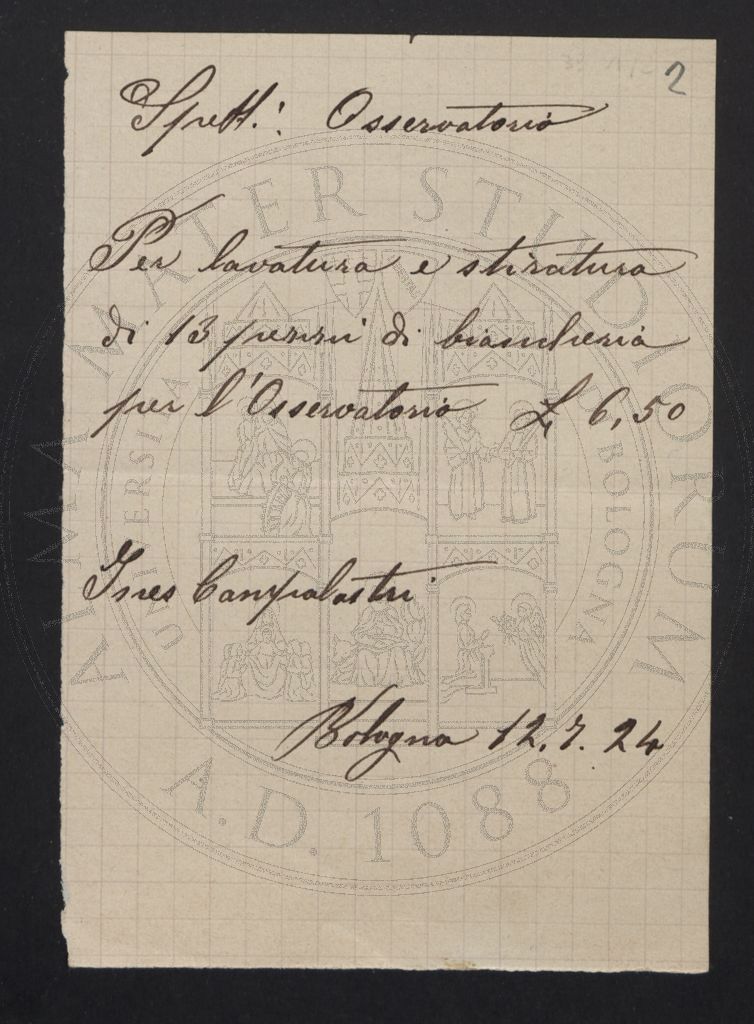 2
Spett.: Osservatorio
Per lavatura e stiratura
di 13 pezzi di biancheria
per l'Osservatorio £ 6,50
Ines Campalastri
Bologna 12.7.24
ALMA MATER STUDIORUM
UNIVERSITÀ BOLOGNA
A.D. 1088